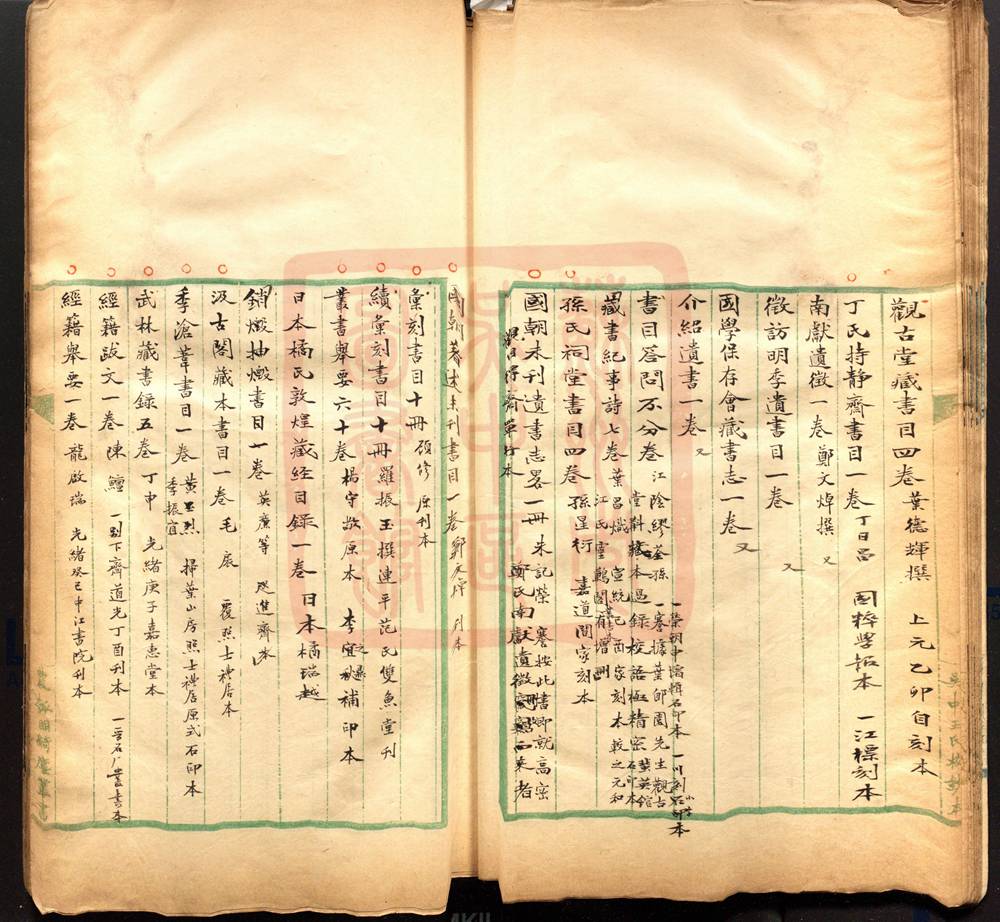 觀古堂藏書目四卷 葉德輝撰 上元乙卯自刻本
丁氏持靜齋書目一卷 丁日昌 國粹學報本 一江標刻本
南獻遺徵一卷 鄭文焯撰 又
徵訪明季遺書目一卷 又
國學保存會藏書志一卷 又
介紹遺書一卷 又
書目答問不分卷 江陰繆荃孫
一蹇據葉郋園先生觀古
堂斠藏本過錄校語極精密
藏書紀事詩七卷 葉昌熾 宣統己酉家刻本較之元和
江氏靈鶼閣有增刪
孫氏祠堂書目四卷 孫星衍 嘉道間家刻本
國朝未刊遺書志畧一冊 朱記榮 蹇按此書卽就高密
鄭氏南獻遺徵
國朝著述未刊書目一卷 鄭文焯 刊本
彙刻書目十冊 顧修 原刊本
續彙刻書目十冊 羅振玉撰 連平范氏雙魚堂刊
叢書舉要六十卷 楊守敬原本 李之鼎補印本
日本橘氏敦煌藏經目錄一卷 日本橘瑞超
銷燬抽燬書目一卷 英廉等 咫進齋本
汲古閣藏本書目一卷 毛扆 覆照士禮居本
季滄葦書目一卷 季振宜 黃丕烈 掃葉山房照士禮居原式石印本
武林藏書錄五卷 丁申 光緒庚子嘉惠堂本
經籍跋文一卷 陳鱣 一別下齋道光丁酉刊本
經籍舉要一卷 龍啟瑞 光緒癸巳中江書院刊本